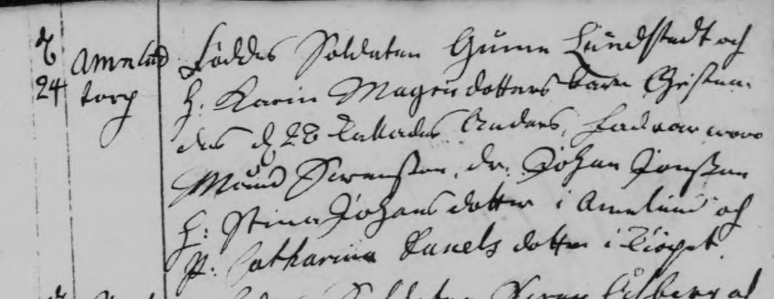 d
24
Amnelund
torp
Föddes Soldaten Gunne Lundstedt och
H. Karin Magnidotters barn Christna-
des d 28 kallades Anders, Fadrar woro
Måns Swensson, dr. Johan Jonsson
H: Stina Johansdotter i Amnelund och
P. Catharina Danelsdotter i
Soldaten Swen